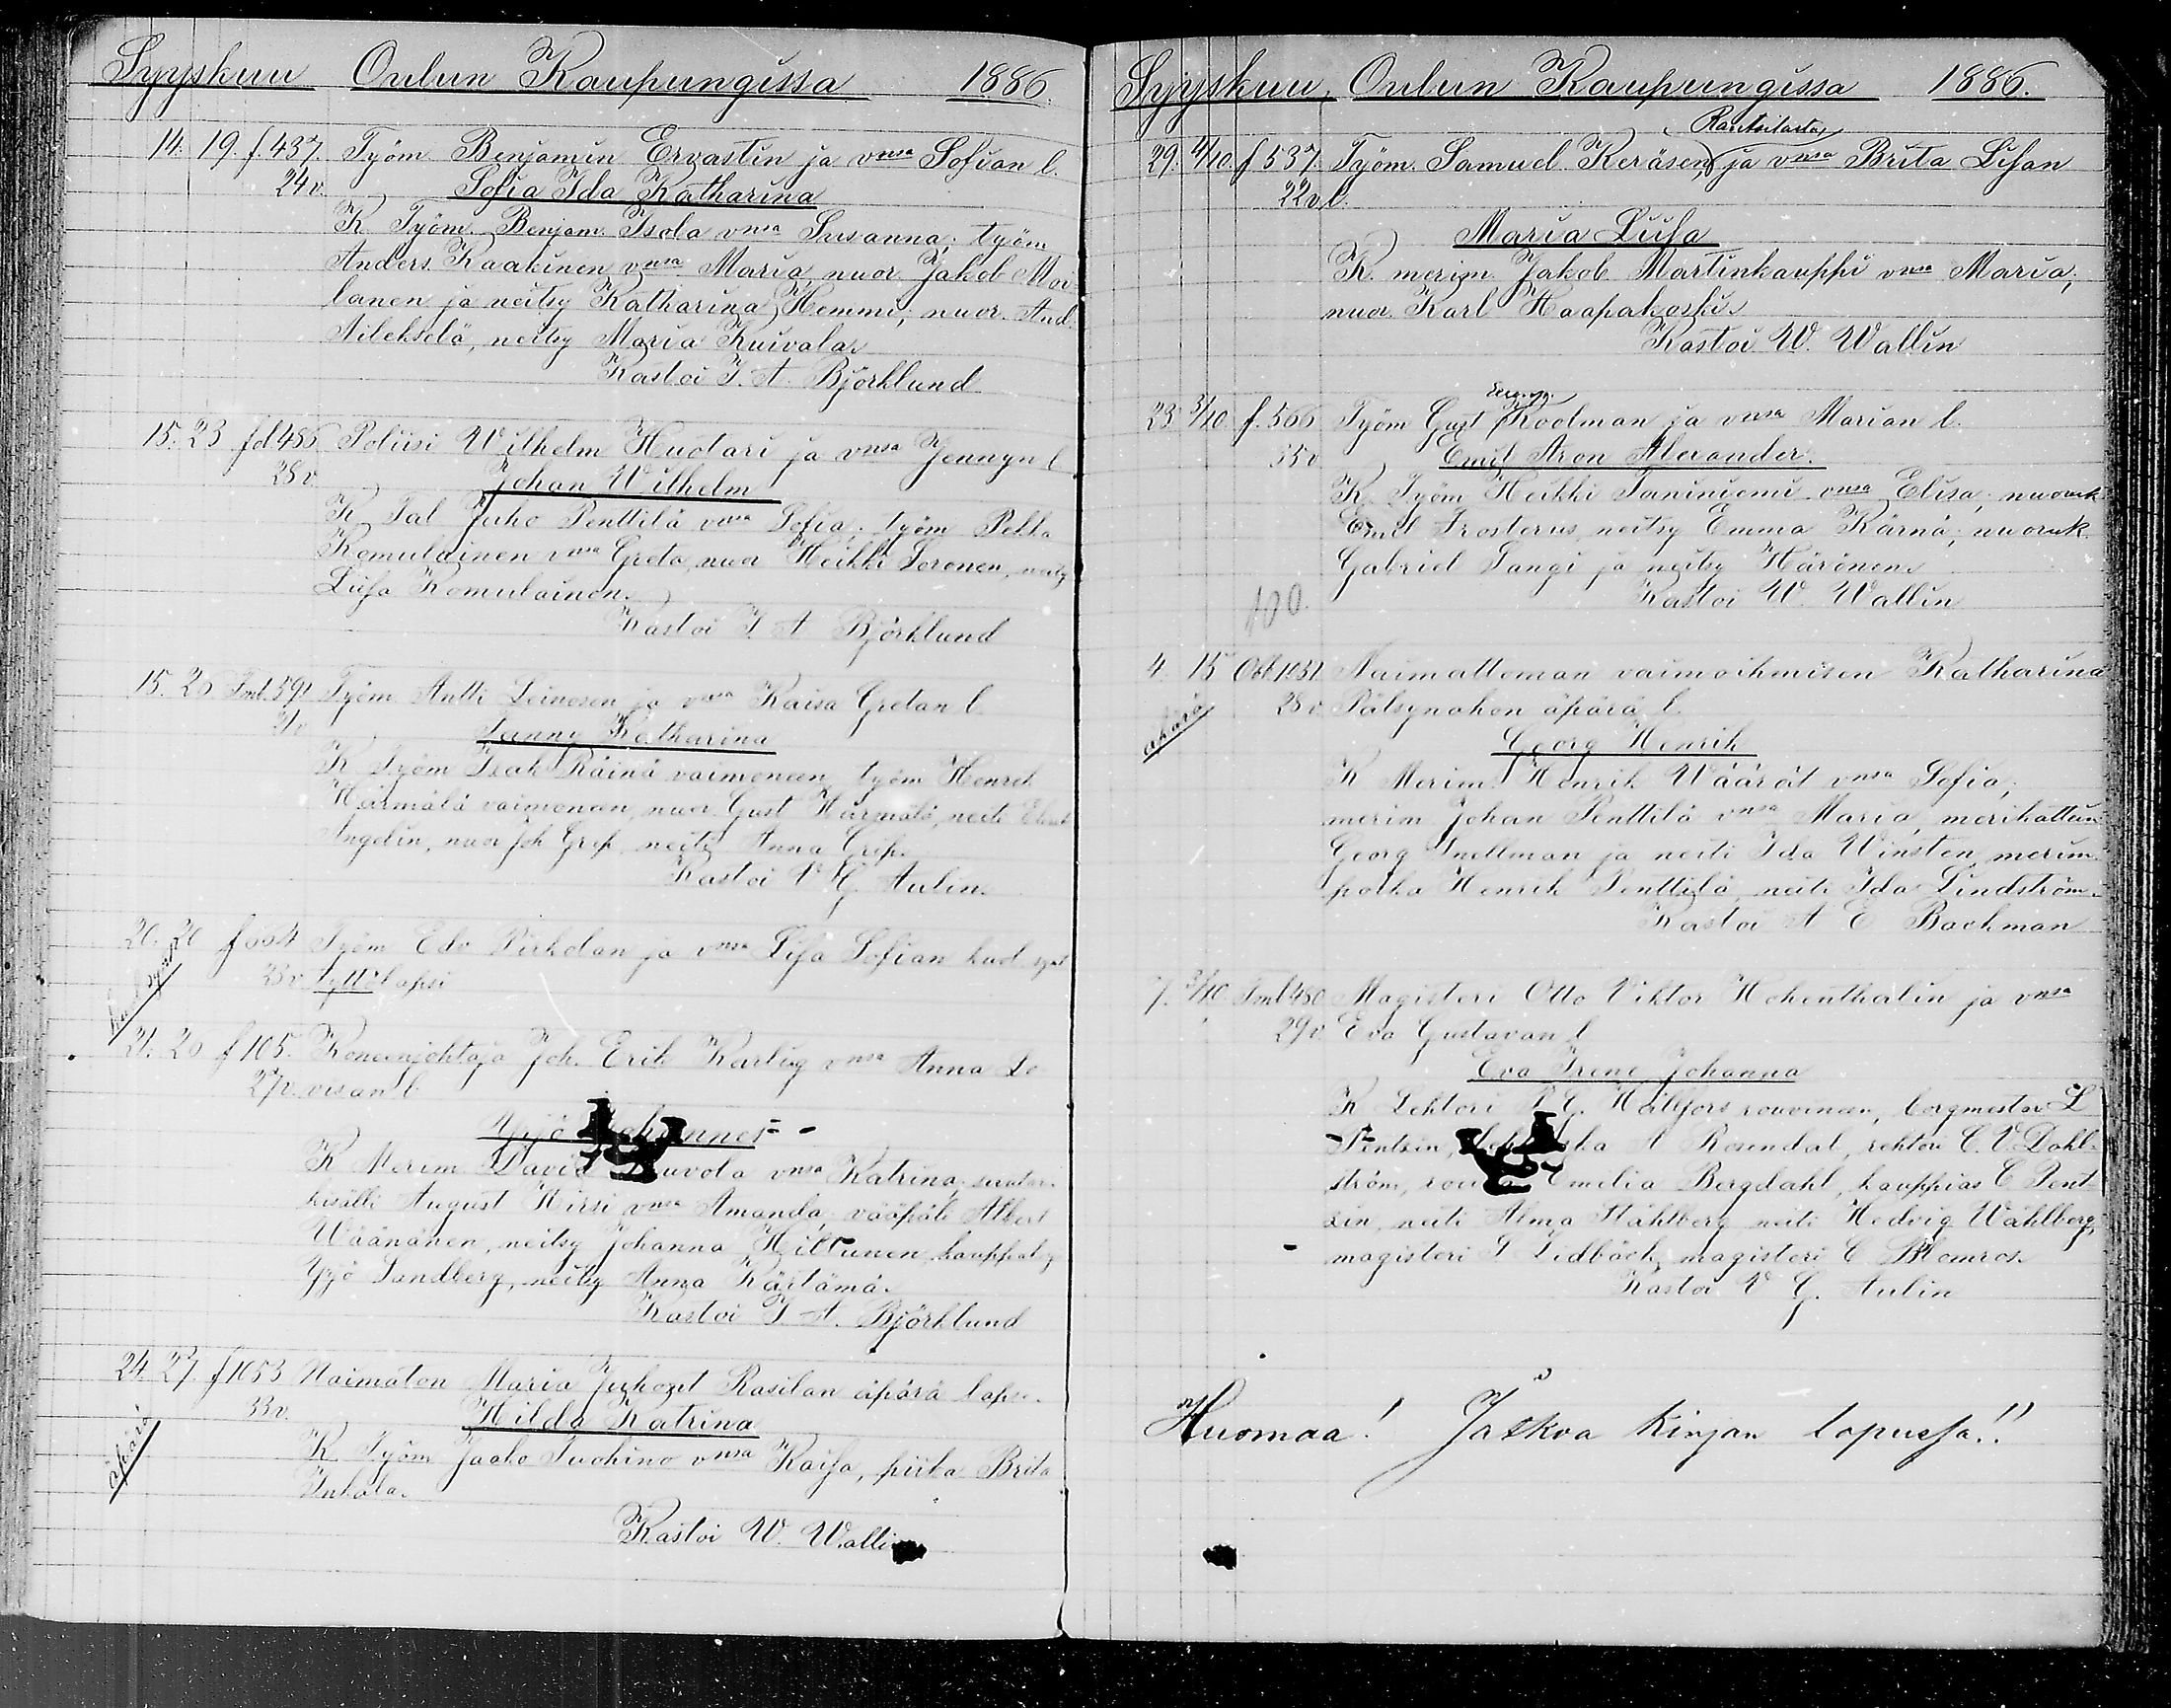 Syyskuu Oulun Kaupungissa 1886.
14. 19. f. 437. Työm Benjamin Ervastin ja vmsa Sofian l.
24 v. Sofia Ida Katharina
K Työm Benjam. Isola vmsa Susanna; työm
Anders Kaakinen vmsa Maria, nuor. Jakob
lanen ja neitsy Katharina Hemmi; nuor. And.
neitsy Maria Kuivala.
Kastoi J. A. Björklund
15. 23 fol 486 Poliisi Wilhelm Huotari ja vmsa Jennyn l
28 v. Johan Wilhelm
K Tal Juho Penttilä vmsa Sofia; työm Pekka
Romulainen vmsa Greta, nuor Heikki Soronen, neitsy
Liisa Romulainen.
Kastoi J A Björklund
15. 20 Sml. 591 Työm Antti Leivosen ja vmsa Kaisa Gretan l.
Sanny Katharina
K Työm Isak Räinä vaimoneen, työm Henrik
Härmälä vaimoneen, nuor Gust Härmälä, neiti
Angelin, nuor Joh Grep, neiti Anna Grep.
Kastoi V G Aulin.
20. 20 f 664 Työm Edv Pirkolan ja vmsa Lisa Sofian kuol synt
33 v tyttölapsi
kuol synt
21. 20 f 105. Koneenjohtaja Joh. Erik Karling vmsa Anna Lo
27 v. visan l.
Yrjö Johannes
K Merim David vmsa Katrina;
kisälli August Hirsi vmsa Amanda; vääpäli Albert
Wäänänen, neitsy Johanna Hiltunen,
Yrjö Sandberg, neitsy Anna Kästämä.
Kastoi J. A. Björklund
24. 27. f 1053 Naimaton Maria Juhozet Rasilan äpärä lapsi.
33 v. Hilda Katrina
äpärä
K. Työm Jaako Tuohino vmsa Kaisa, piika Brita
Inkala.
Kastoi W. Wallin
Syyskuu, Oulun Kaupungissa 1886.
Rantsilasta
29. 4/10. f 537. Työm. Samuel Keräsen, ja vmsa Brita Lisan
22 v. l.
Maria Liisa
K. merim. Jakob Martinkauppi vmsa Maria;
nuor. Karl Haapakoski.
Kastoi W. Wallin
23 3/10 f. 566 Työm Gust Roolman ja vmsa Marian l.
35 v Emil Aron Alexander.
K. Työm Heikki Taniniemi vmsa Elisa; nuoruk
Emil Frosterus, neitsy Emma Kärnä; nuoruk.
Gabriel Langi ja neitsy Härönen.
Kastoi W. Wallin
100.
4. 15 Obl. 1031. Naimattoman vaimoihmisen Katharina
28 v. Pätsynahon äpärä l.
äpärä
Georg Henrik
K Merim. Henrik Wäärät vmsa Sofia;
merim Johan Penttilä vmsa Maria, merikattein
Georg Snellman ja neiti Ida Winsten, merim.
poika Henrik Penttilä, neiti Ida Lindström.
Kastoi A E Backman
7. 3/10. Sml 480 Magisteri Otto Viktor Hohenthalin ja vmsa
29 v. Eva Gustavan l
Eva Irene Johanna
K Lehtori Hällfors rouvineen, borgmestar L
Pentzin, A Rosendal, rehtori C. V. Dahl-
ström, rouva Emelia Bergdahl, kauppias C Pent-
zin, neiti Alma Ståhlberg neiti Hedvig Wåhlberg,
magisteri S Lidbäck, magisteri C Blomros.
Kastoi V G. Aulin
Huomaa! Jatkoa kirjan lopussa!!